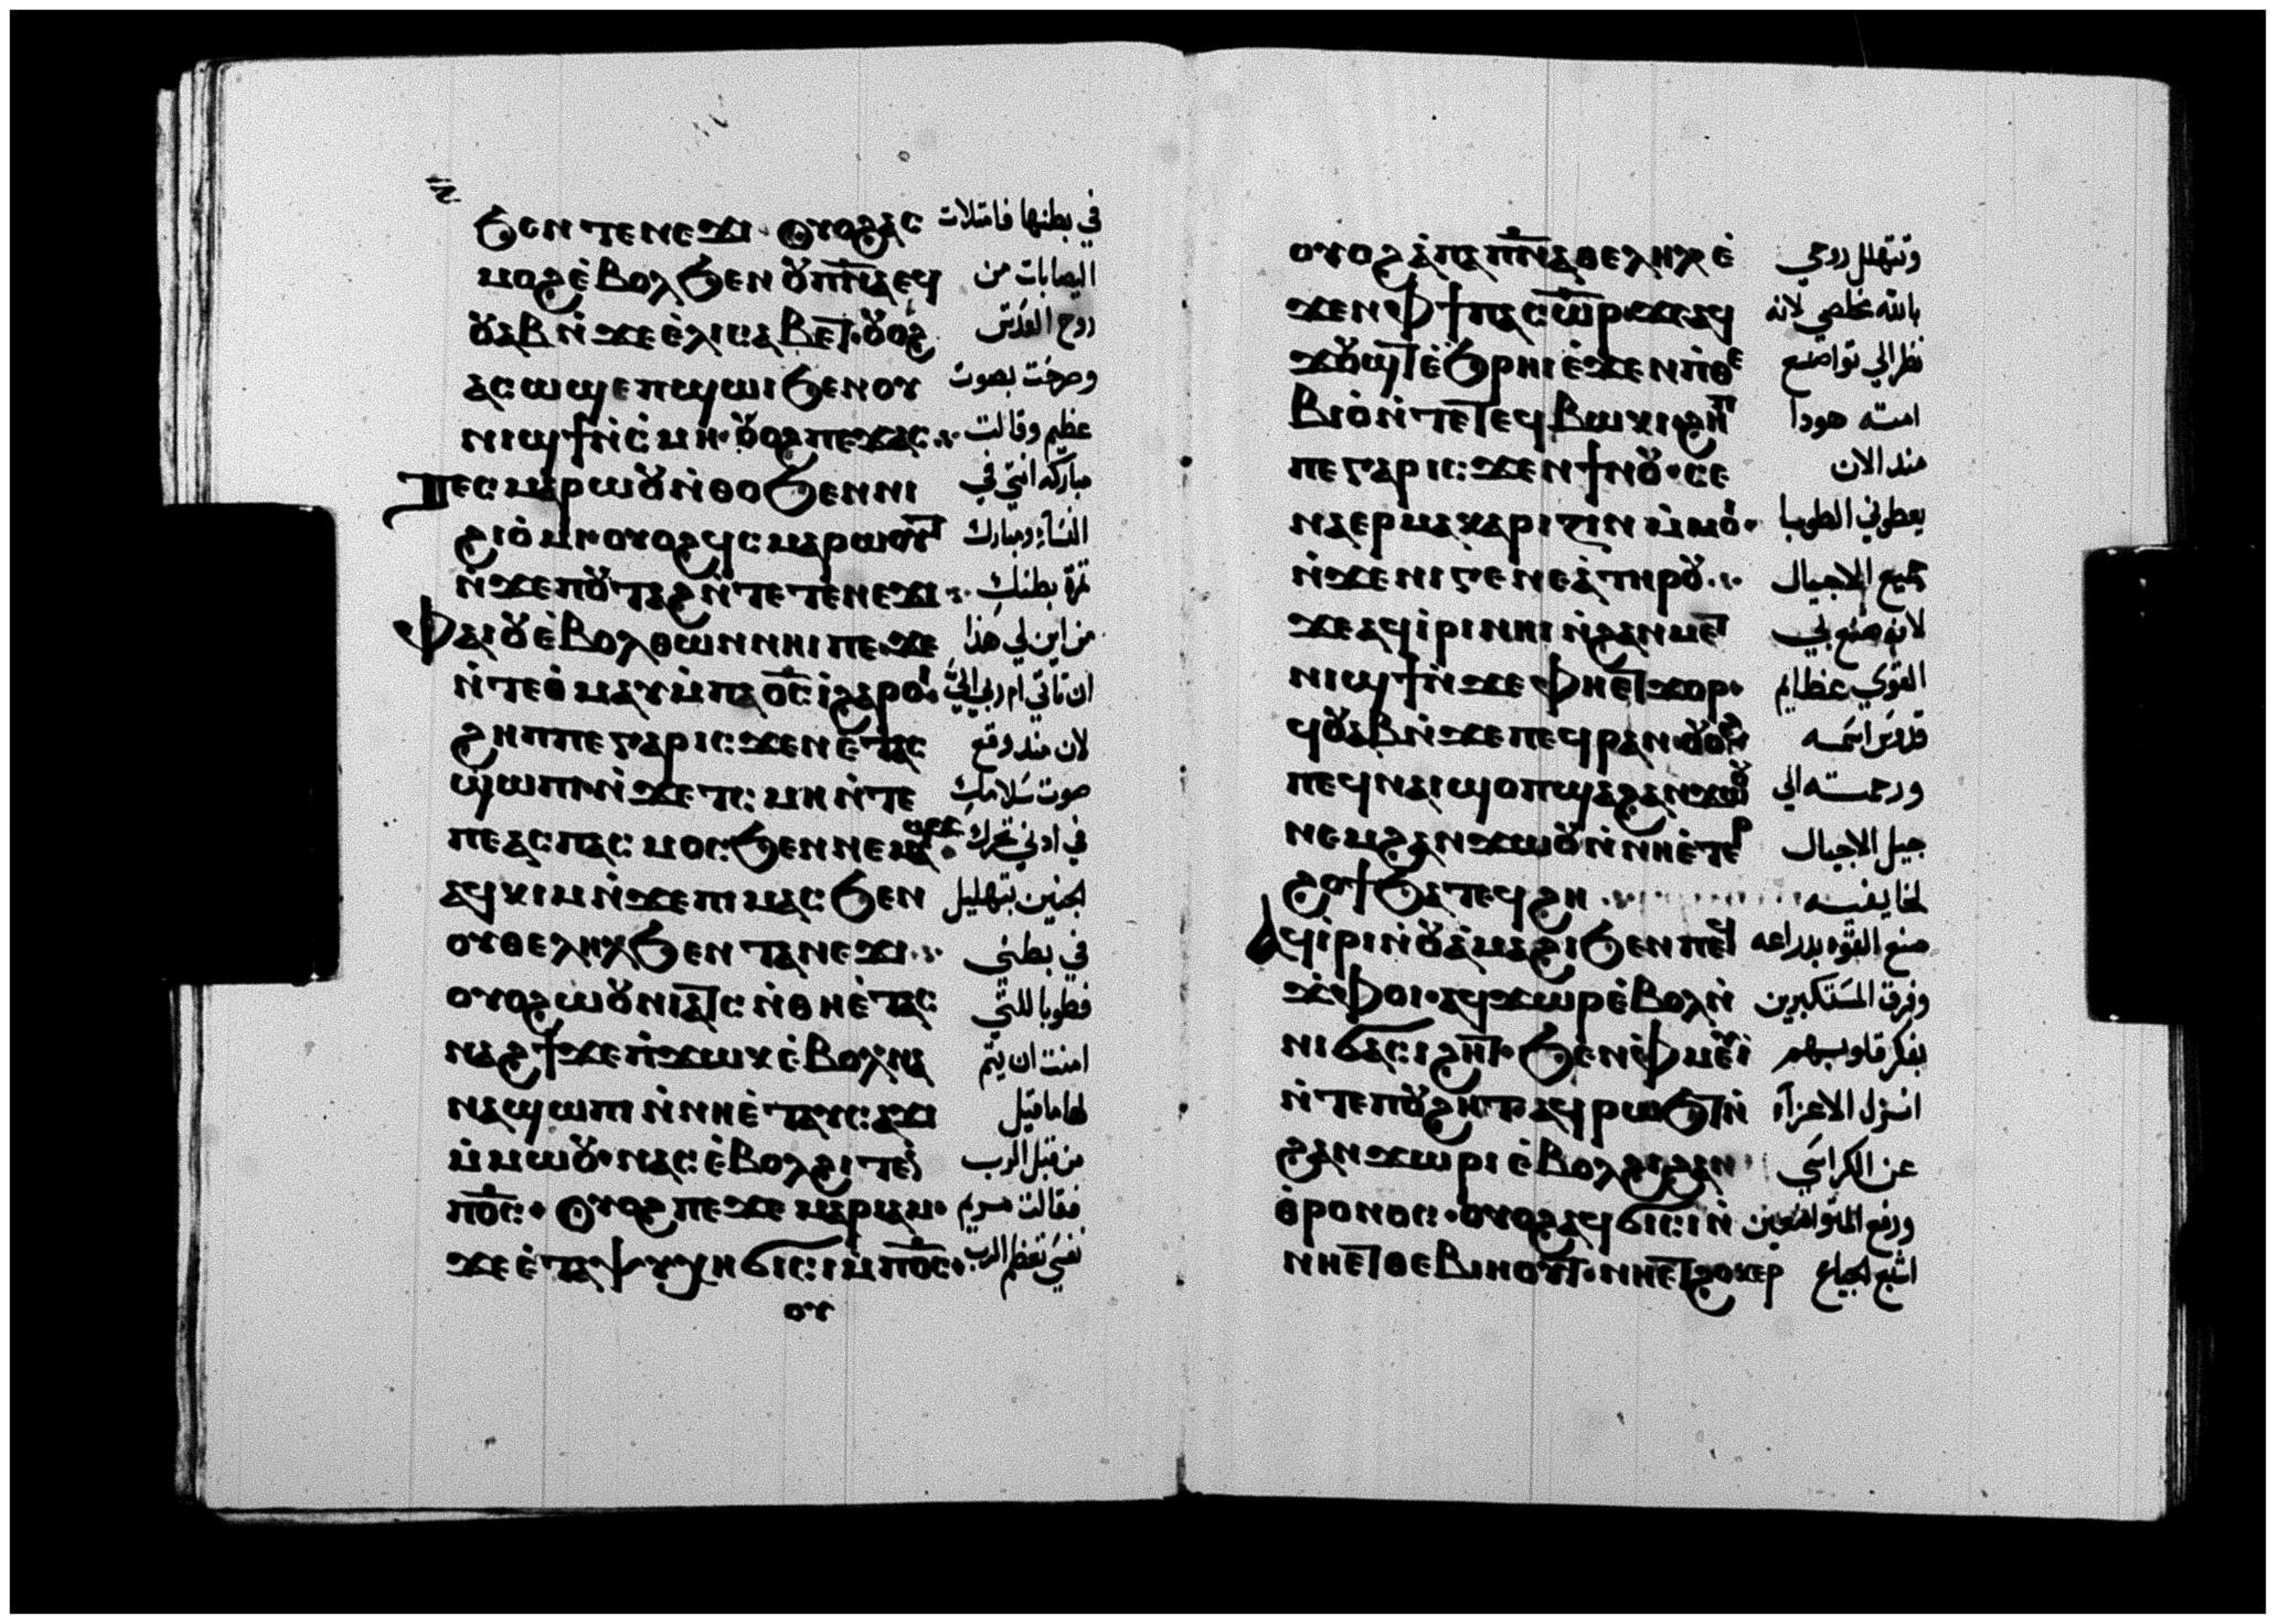 ϧⲉⲛ ⲧⲉⲛⲉϫⲓ · ⲟⲩⲟϩ ⲁⲥ في بطنها فامتلات
ⲙⲟϩ ⲉ̇ⲃⲟⲗ ϧⲉⲛ ⲟⲩⲡ̅ⲛ̅ⲁ̅ ⲉϥ اليصابات من
ⲟⲩⲁⲃ ⲛ̇ϫⲉ ⲉ̇ⲗⲓⲥⲁⲃⲉⲧ · ⲟⲩⲟϩ روح القدس
ⲁⲥⲱϣ ⲉⲡϣⲱⲓ ϧⲉⲛ ⲟⲩ وصرخت بصوت
ⲛⲓϣϯ ⲛ̇ⲥ̇ⲙⲏ · ⲟⲩⲟϩ ⲡⲉϫⲁⲥ ·:· عظيم وقالت
ⲧⲉⲥⲙⲁⲣⲱⲟⲩ ⲛ̇ⲑⲟ ϧⲉⲛ ⲛⲓ مباركه انتي في
ϩⲓⲟ̇ⲙⲓ · ⲟⲩⲟϩ ϥⲥⲙⲁⲣⲱⲟⲩⲧ النسآء ومبارك
ⲛ̇ϫⲉ ⲡⲟⲩⲧⲁϩ ⲛ̇ⲧⲉ ⲧⲉ̇ⲛⲉϫⲓ ·:· ثمرة بطنك
ⲫⲁⲓ ⲟⲩⲉ̇ⲃⲟⲗ ⲑⲱⲛ ⲛⲏⲓ ⲡⲉ ϫⲉ من اين لي هذا
ⲛ̇ⲧⲉ ⲑ̇ⲙⲁⲩ ⲙ̇ⲡⲁⲟ̅ⲥ̅ ⲓ̇ ϩⲁⲣⲟⲓ · ان تاتي ام ربي اليَّ
ϩⲏⲡⲡⲉ ⲅⲁⲣ ⲓⲥϫⲉⲛ ⲉ̇ⲧⲁⲥ لان مند وقع
ϣⲱⲡⲓ ⲛ̇ϫⲉ ⲧⲥⲙⲏ ⲛ̇ⲧⲉ صوت سلامك
ⲡⲉⲁⲥⲡⲁⲥⲙⲟⲥ ϧⲉⲛ ⲛⲉⲙⲁϣϫ · في ادني تحرك
ⲁϥⲕⲓⲙ ⲛ̇ϫⲉ ⲡⲓⲙⲁⲥ ϧⲉⲛ الجنين بتهليل
ⲟⲩⲑⲉⲗⲏⲗ ϧⲉⲛ ⲧⲁⲛⲉϫⲓ ·:· في بطني
ⲟⲩⲟϩ ⲱⲟⲩⲛⲓⲁⲧⲥ ⲛ̇ⲑⲏ ⲉ̇ⲧⲁⲥ فطوبا للتي
ⲛⲁϩϯ ϫⲉ ⲡ̇ϫⲱⲕ ⲉ̇ⲃⲟⲗ ⲛⲁ امنت ان يتم
ⲛⲁϣⲱⲡⲓ ⲛ̇ⲛⲏ ⲉ̇ⲧⲁⲩⲥⲁϫⲓ لها ما قيل
ⲙ̇ⲙⲱⲟⲩ · ⲛⲁⲥ ⲉ̇ⲃⲟⲗ ϩⲓⲧⲉⲛ من قبل الرب
ⲡⲟ̅ⲥ̅ · ⲟⲩⲟϩ ⲡⲉϫⲉ ⲙⲁⲣⲓⲁⲙ · فقالت مريم
ϫⲉ ⲉ̇ ⲧⲁⲯⲩⲭⲏ ϭⲓⲥⲓ ⲙ̇ⲡⲟ̅ⲥ̅ · نفسي تعظم الرب
ⲟⲩ
ⲟⲩⲟϩ ⲁ̇ ⲡⲁⲡ̅ⲛ̅ⲁ̅ ⲑⲉⲗⲏⲗ ⲉ̇ وتتهلل روحي
ϫⲉⲛ ⲫϯ ⲡⲁⲥⲱ̅ⲣ̅ · ϫⲉ ⲁϥ بالله مخلصي لانه
ϫⲟⲩϣⲧ ⲉ̇ϧⲣⲏⲓ ⲉ̇ϫⲉⲛ ⲡ̇ⲑⲉ نظر الي تواضع
ⲃⲓⲟ̇ ⲛ̇ⲧⲉ ⲧⲉϥⲃⲱⲕⲓ · ϩⲏⲡ امته هودا
ⲡⲉ ⲅⲁⲣ ⲓⲥϫⲉⲛ ϯⲛⲟⲩ · ⲥⲉ مند الان
ⲛⲁⲉⲣⲙⲁⲕⲁⲣⲓⲍⲓⲛ ⲙ̇ⲙⲟⲓ · يعطوني الطوبا
ⲛ̇ϫⲉ ⲛⲓⲅⲉⲛⲉⲁ̇ ⲧⲏⲣⲟⲩ ·:· جميع الاجيال
ϫⲉ ⲁϥⲓ̇ⲣⲓ ⲛⲏⲓ ⲛ̇ϩⲁⲛⲙⲉⲧ لانه صنع بي
ⲛⲓϣϯ ⲛ̇ϫⲉ ⲫⲏⲉⲧϫⲟⲣ · القوي عظايم
ϥⲟⲩⲁⲃ ⲛ̇ϫⲉ ⲡⲉϥⲣⲁⲛ · ⲟⲩⲟϩ قدوس اسمه
ⲡⲉϥⲛⲁⲓ ϣⲟⲡ ϣⲁ ϩⲁⲛϫⲱⲟⲩ ورحمته الي
ⲛⲉⲙ ϩⲁⲛϫⲱⲟⲩ ⲛ̇ⲛⲏ ⲉ̇ⲧⲉⲣ جيل الاجيال
ϩⲟϯ ϧⲁⲧⲉϥϩⲏ ·:· لخايفيه
ⲁϥⲓ̇ⲣⲓ ⲛ̇ⲟⲩⲁ̇ⲙⲁϩⲓ ϧⲉⲛ ⲡⲉϥ صنع القوه بدراعه
ϫ̇ⲫⲟⲓ · ⲁϥϫⲱⲣ ⲉ̇ⲃⲟⲗ ⲛ̇ وفرق المستكبرين
ⲛⲓϭⲁⲥⲓϩⲏⲧ · ϧⲉⲛ ⲫ̇ⲙⲉⲩⲓ̇ بفكر قلوبهم
ⲛ̇ⲧⲉ ⲡⲟⲩϩⲏⲧ · ⲁϥⲣⲱϧⲧ ⲛ̇ انزل الاعزآء
ϩⲁⲛϫⲱⲣⲓ ⲉ̇ⲃⲟⲗ ϩⲓ ϩⲁⲛ عن الكراسي
ⲑ̇ⲣⲟⲛⲟⲥ · ⲟⲩⲟϩ ⲁϥϭⲓⲥⲓ ⲛ̇ ورفع المتواضعين
ⲛⲏⲉⲧⲑⲉⲃⲓⲏⲟⲩⲧ · ⲛⲏⲉⲧϩⲟⲕⲉⲣ اشبع الجياع